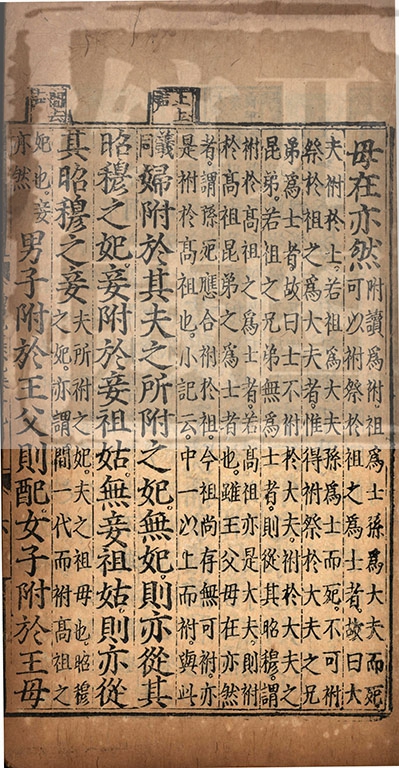 母在亦然附讀爲祔。祖爲士孫爲大夫而死
可以祔祭於祖之爲士者。故曰大
夫祔於士。若祖爲大夫孫爲士而死。不可祔
祭於祖之爲大夫者。惟得祔祭於大夫之兄
弟爲士者。故曰士不祔於大夫。祔於大夫之
昆弟。若祖之兄弟無爲士者。則從其昭穆。謂
祔於高祖之爲士者。若高祖亦是大夫。則祔
於高祖昆弟之爲士者也。雖王父母在亦然
者謂孫死應合祔於祖。今祖尚存無可祔。亦
是祔於高祖也。小記云。中一以上而祔。與此
上上聲
義同婦附於其夫之所附之妃。無妃。則亦從其
昭穆之妃。妾附於妾祖姑。無妾祖姑。則亦從
其昭穆之妾夫所祔之妃。夫之祖母也。昭穆
之妃。亦謂間一代而祔高祖之
間去聲
妃也。妾亦然男子附於王父則配。女子附於王母